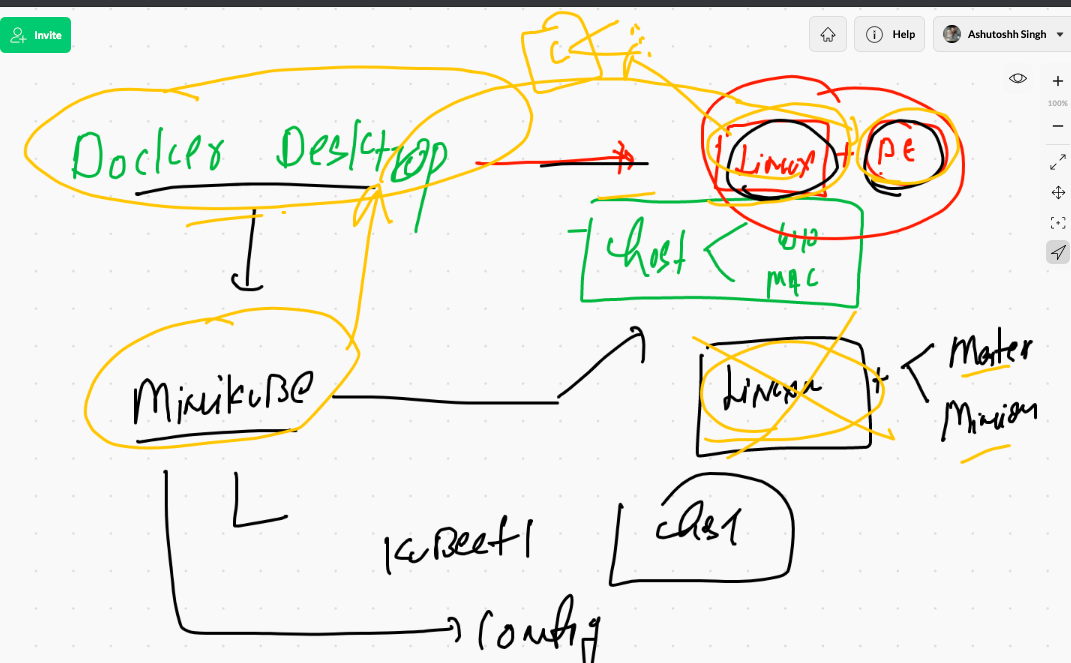 Invite
Help
Ashutoshh Singh
100%
C
Docker Desktop
Linux + DE
host
W10
MAC
MinikuBe
Linux +
Master
Minion
kuBectl
config